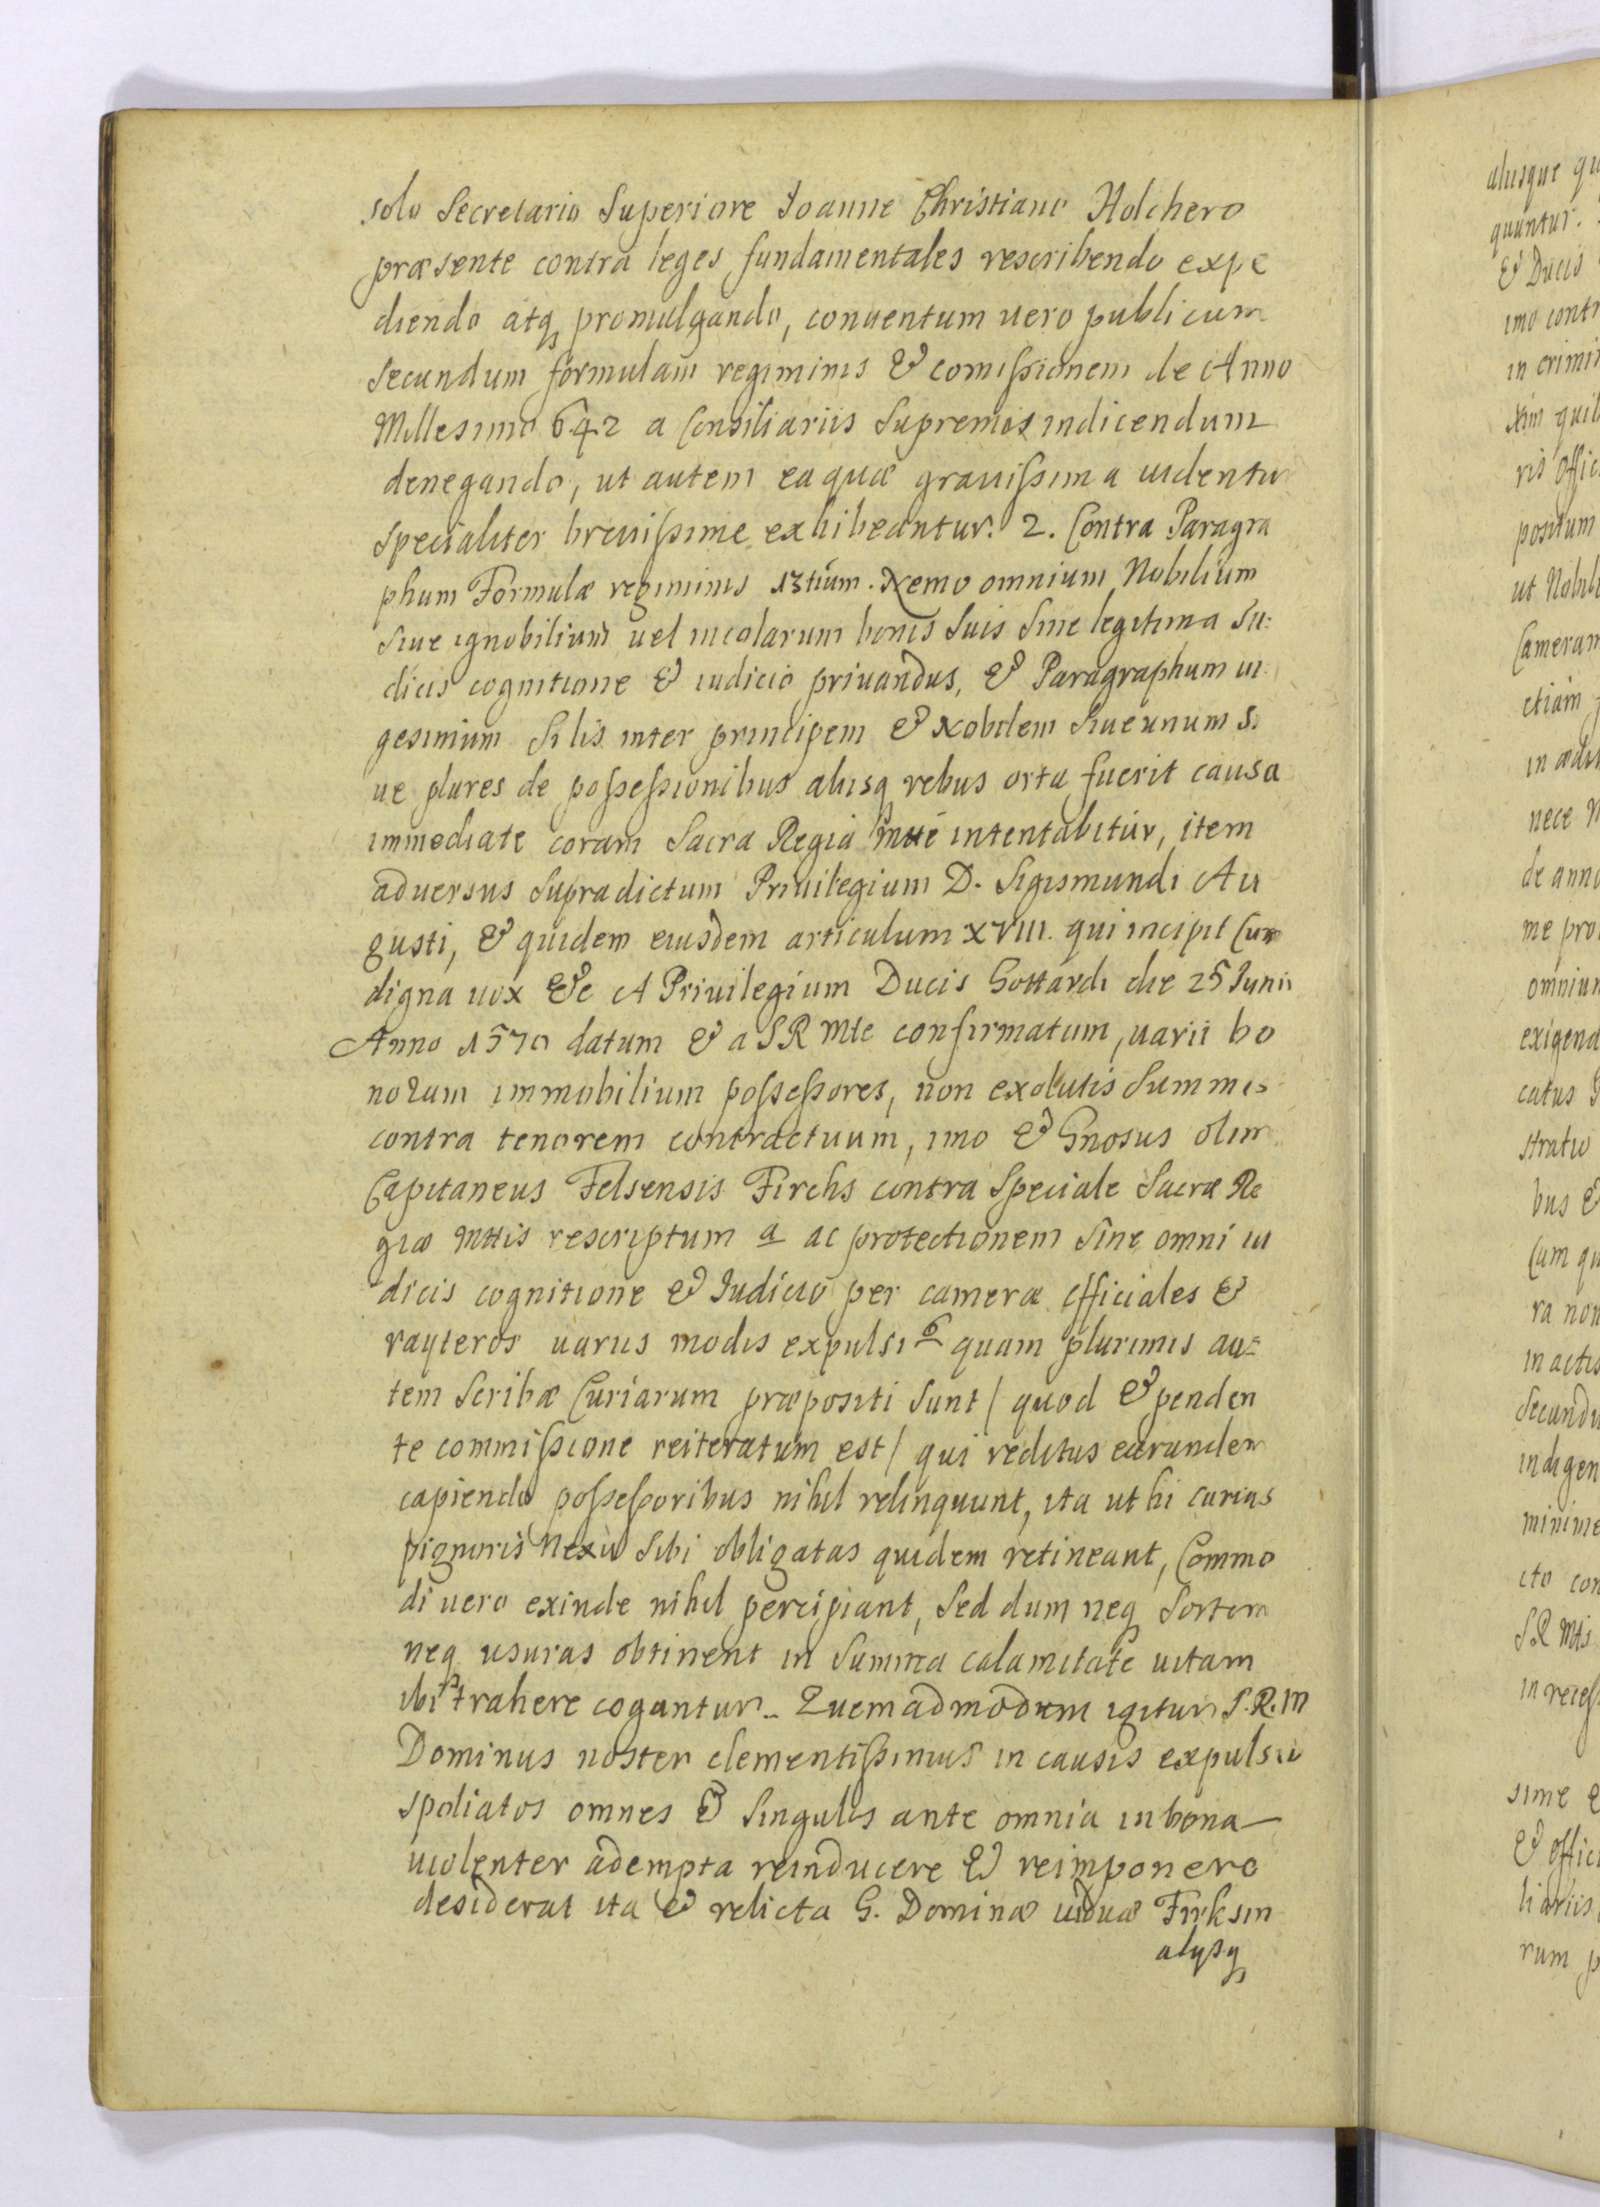 solo Secretario Superiore Joanne Christiano Holchero
præsente contra leges fundamentales rescribendo expe
diendo atq promulgando, conuentum uero publicum
Secundum formulam regiminis & comißionem de Anno
Millesimo 642 a Consiliariis Supremis indicendum
denegando, ut autem ea quæ grauißima uidentur
Specialiter breuißime exhibeantur. 2. Contra Paragra
phum Formulæ regiminis 13tium. Nemo omnium Nobilium
siue ignobilium uel incolarum bonis suis sine legitima Iu:
dicis cognitione & iudicio priuandus, & Paragraphum ui
gesimum Si lis inter principem & Nobilem siue unum si
ue plures de poßeßionibus aliisq rebus orta fuerit causa
immediate coram Sacra Regia Mtte intentabitur, item
aduersus supradictum Priuilegium D. Sigismundi Au
gusti, & quidem eiusdem articulum XVIII. qui incipit Cum
digna uox &c A Priuilegium Ducis Gottardi die 25 Junii
Anno 1570 datum & a S R Mte confirmatum, uarii bo
norum immobilium poßeßores, non exolutis Summis
contra tenorem contractuum, imo & Gnosus olim
Capitaneus Felsensis Firchs contra Speciale Sacræ Re
giæ Mttis rescriptum a ac protectionem sine omni iu
dicis cognitione & Iudicio per cameræ officiales &
rayteros uariis modis expulsi 6 quam plurimis au=
tem Scribæ Curiarum præpositi sunt / quod & penden
te commißione reiteratum est / qui reditus earundem
capiendo poßeßoribus nihil relinquunt, ita ut hi curias
pignoris Nexu sibi obligatas quidem retineant, Commo
di uero exinde nihil percipiant, sed dum neq Sortem
neq usuras obtinent in summa calamitate uitam
ibi trahere cogantur. Quemadmodum igitur S. R. M
Dominus noster clementißimus in causis expulsiu
spoliatos omnes & singulos ante omnia in bona
uiolenter adempta reinducere & reimponere
desiderat ita & relicta G. Dominæ uiduæ Firksin
alysq
alusque
quuntur.
& Ducis
imo contr
in crimin
xim quil
ris offic
positum
ut Nobili
Cameram
etiam
in ædi
nece
de anno
me pro
omnium
exigend
catus
stratio
bus &
Cum qu
ra non
in actis
Secundu
indigen
minime
cto con
S.R Mtis
in receß
sime &
& offici
liariis
rum p